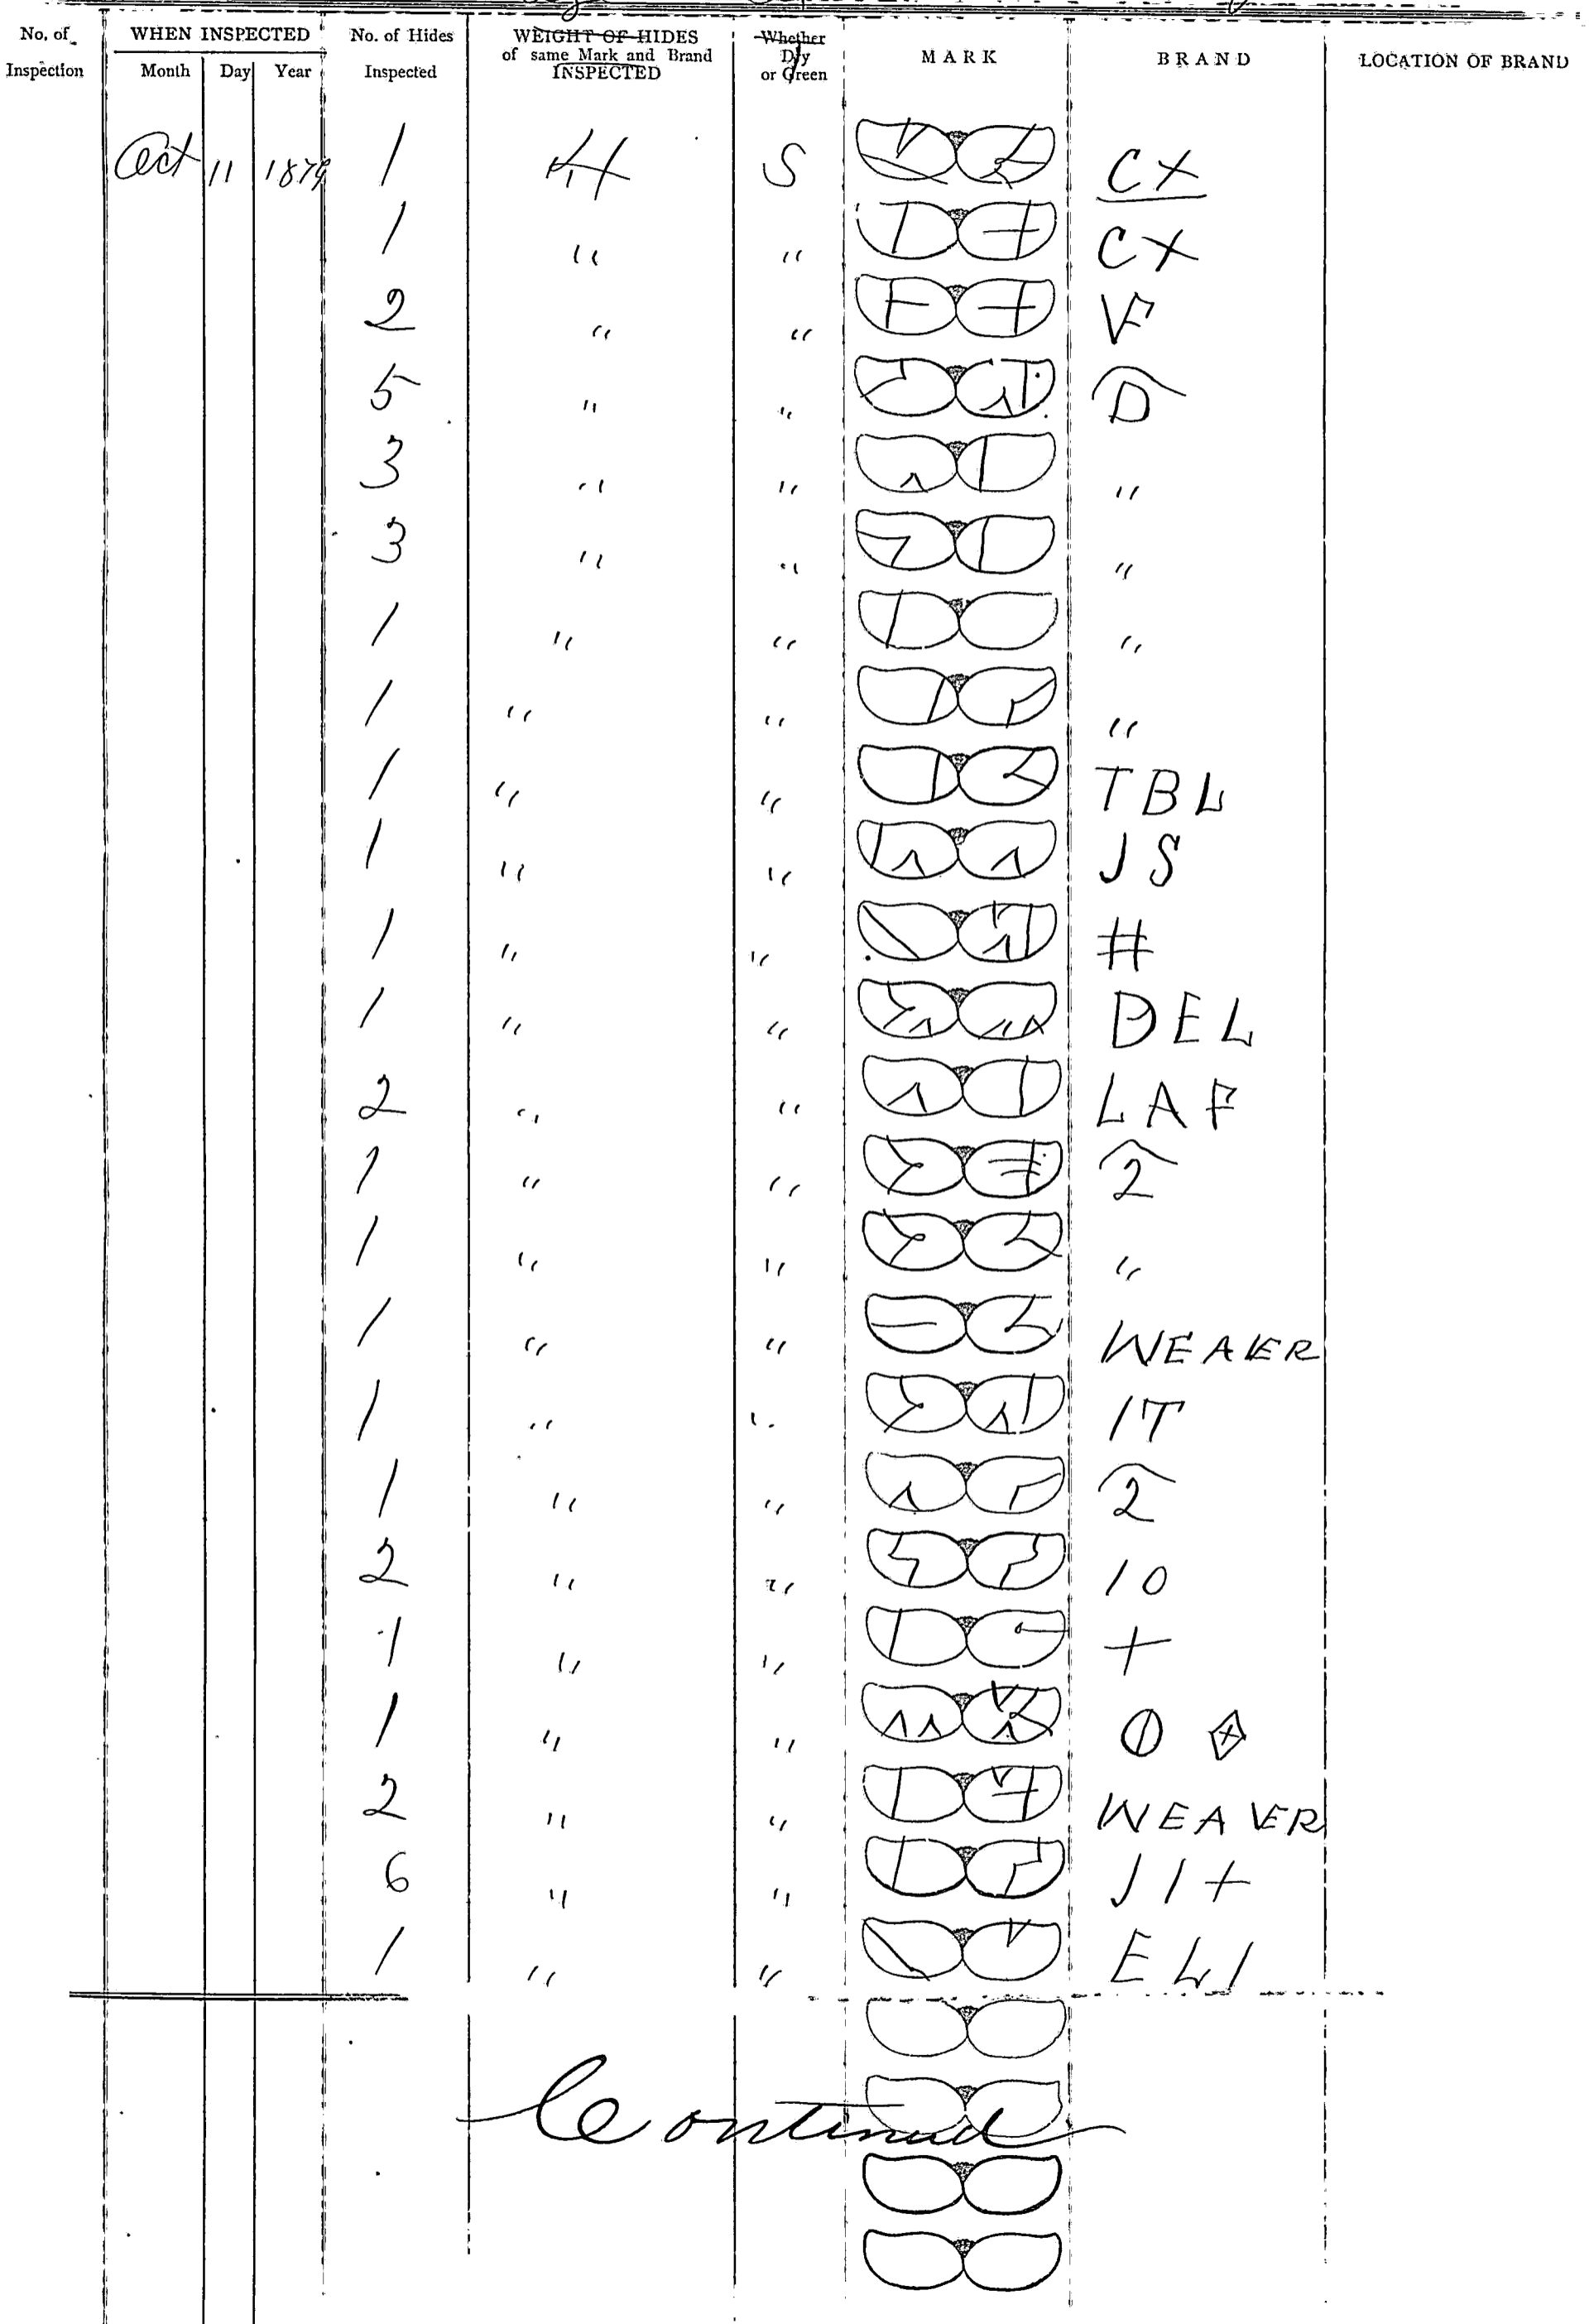 No. of Inspection WHEN INSPECTED Month Day Year No. of Hides Inspected WEIGHT OF HIDES of same Mark and Brand INSPECTED Whether Dry or Green MARK BRAND LOCATION OF BRAND
Oct 11 1879 1 H S CX
1 " " CX
2 " " VF
5 " " D
3 " " "
3 " " "
1 " " "
1 " " "
1 " " TBL
1 " " JS
1 " " #
1 " " DEL
2 " " LAF
1 " " 2
1 " " "
1 " " WEAVER
1 " " IT
1 " " 2
2 " " 10
1 " " +
1 " "
2 " " WEAVER
6 " " J1+
1 " " ELI
Continued